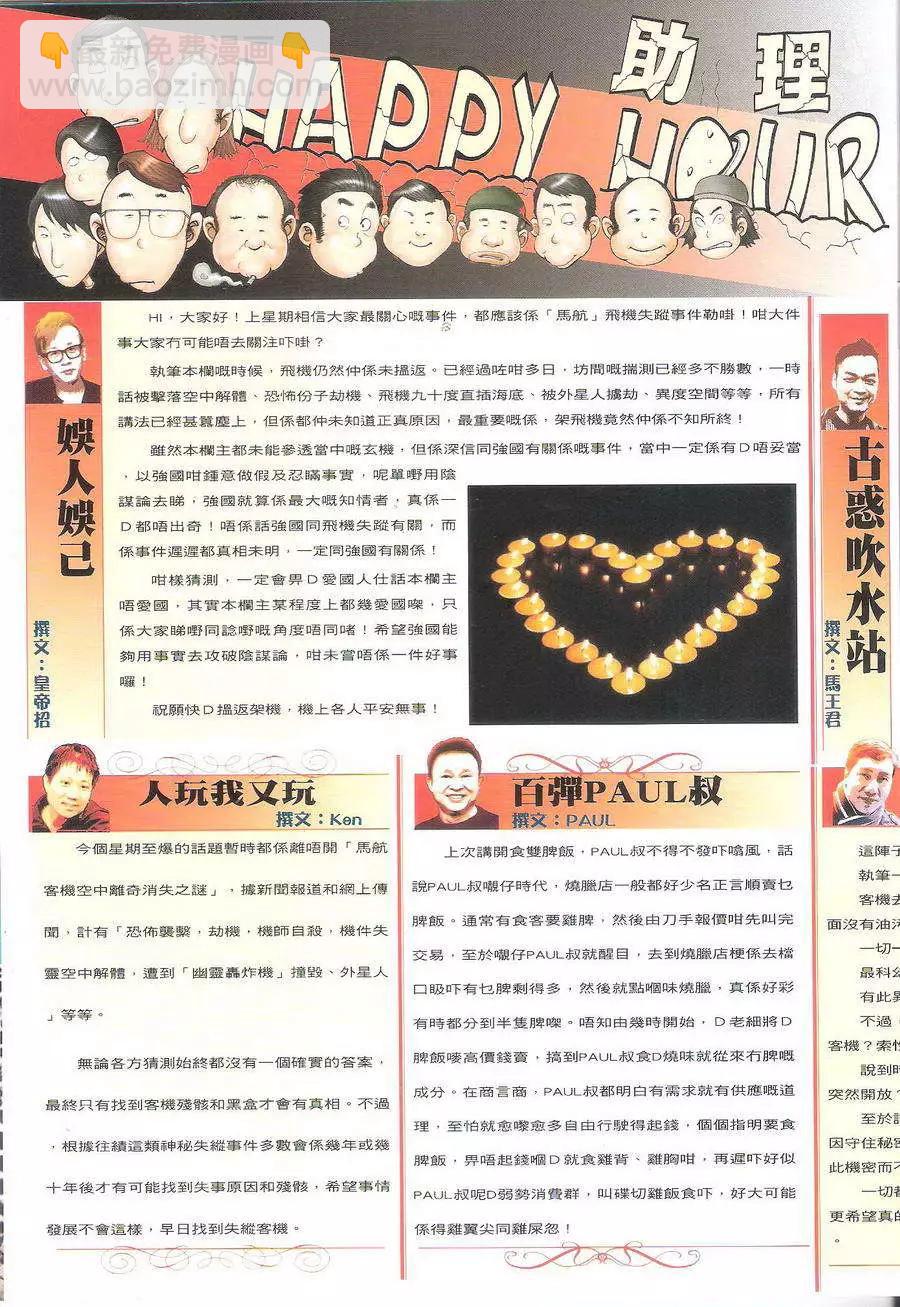 最新免费漫画
www.baozimh.com
助理
HAPPY HOUR
娛人娛己
撰文：皇帝招
HI，大家好！上星期相信大家最關心嘅事件，都應該係「馬航」飛機失蹤事件勒啩！咁大件
事大家冇可能唔去關注吓啩？
執筆本欄嘅時候，飛機仍然仲係未搵返。已經過咗咁多日，坊間嘅揣測已經多不勝數，一時
話被擊落空中解體、恐怖份子劫機、飛機九十度直插海底、被外星人擄劫、異度空間等等，所有
講法已經甚囂塵上，但係都仲未知道正真原因，最重要嘅係，架飛機竟然仲係不知所終！
雖然本欄主都未能參透當中嘅玄機，但係深信同強國有關係嘅事件，當中一定係有D唔妥當
，以強國咁鍾意做假及忍瞞事實，呢單嘢用陰
謀論去睇，強國就算係最大嘅知情者，真係一
D都唔出奇！唔係話強國同飛機失蹤有關，而
係事件遲遲都真相未明，一定同強國有關係！
咁樣猜測，一定會畀D愛國人仕話本欄主
唔愛國，其實本欄主某程度上都幾愛國㗎，只
係大家睇嘢同諗嘢嘅角度唔同啫！希望強國能
夠用事實去攻破陰謀論，咁未嘗唔係一件好事
囉！
祝願快D搵返架機，機上各人平安無事！
古惑吹水站
撰文：馬王君
人玩我又玩
撰文：Ken
今個星期至爆的話題暫時都係離唔開「馬航
客機空中離奇消失之謎」，據新聞報道和網上傳
聞，計有「恐佈襲擊，劫機，機師自殺，機件失
靈空中解體，遭到「幽靈轟炸機」撞毀、外星人
」等等。
無論各方猜測始終都沒有一個確實的答案，
最終只有找到客機殘骸和黑盒才會有真相。不過
，根據往績這類神秘失蹤事件多數會係幾年或幾
十年後才有可能找到失事原因和殘骸，希望事情
發展不會這樣，早日找到失縱客機。
百彈PAUL叔
撰文：PAUL
上次講開食雙脾飯，PAUL叔不得不發吓噏風，話
說PAUL叔𡃁仔時代，燒臘店一般都好少名正言順賣乜
脾飯。通常有食客要雞脾，然後由刀手報價咁先叫完
交易，至於𡃁仔PAUL叔就醒目，去到燒臘店梗係去檔
口昅吓有乜脾剩得多，然後就點嗰味燒臘，真係好彩
有時都分到半隻脾㗎。唔知由幾時開始，D老細將D
脾飯嘜高價錢賣，搞到PAUL叔食D燒味就從來冇脾嘅
成分。在商言商，PAUL叔都明白有需求就有供應嘅道
理，至怕就愈嚟愈多自由行駛得起錢，個個指明要食
脾飯，畀唔起錢嗰D就食雞背、雞胸咁，再遲吓好似
PAUL叔呢D弱勢消費群，叫碟切雞飯食吓，好大可能
係得雞翼尖同雞屎忽！
這陣子
執筆一
客機去
面沒有油污
一切一
最科幻
有此異
不過，
客機？索性
說到時
突然開放？
至於
因守住秘密
此機密而不
一切都
更希望真的
。